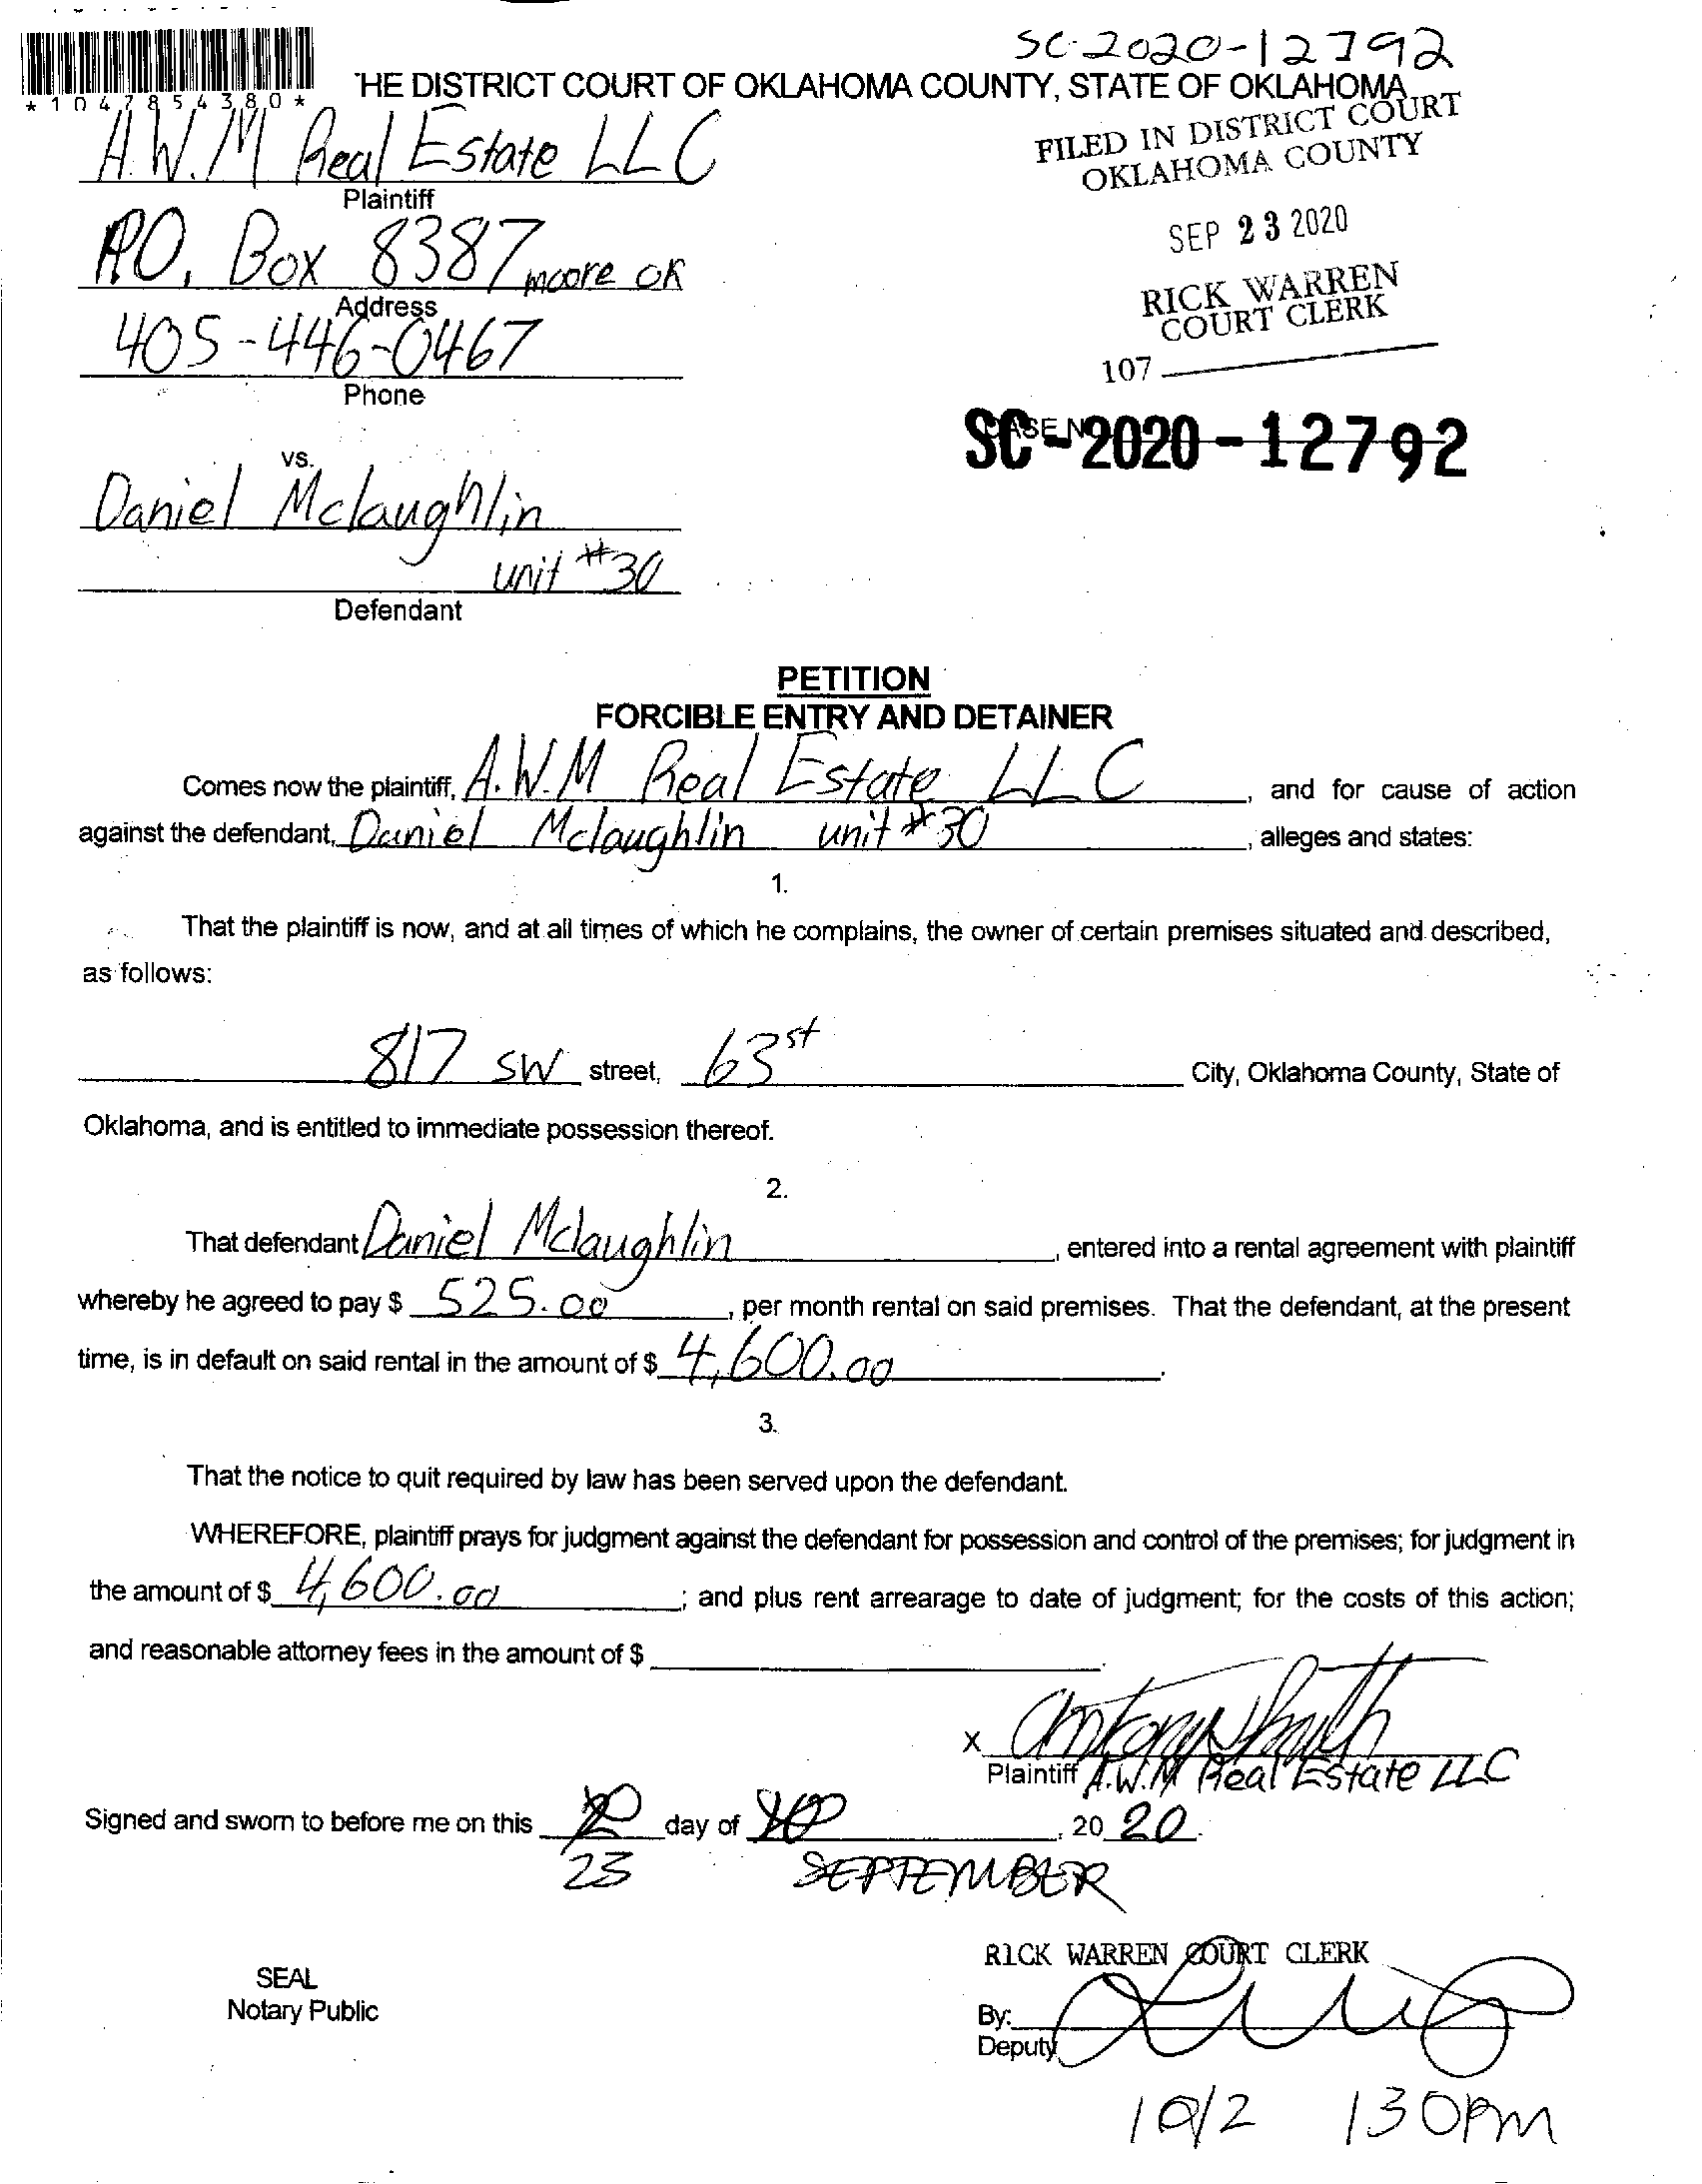 SC-2020-12792
*1047854380*
'HE DISTRICT COURT OF OKLAHOMA COUNTY, STATE OF OKLAHOMA
FILED IN DISTRICT COURT
OKLAHOMA COUNTY
A.W.M Real Estate LLC
Plaintiff
SEP 23 2020
P.O. Box 8387 moore OK
Address
RICK WARREN
COURT CLERK
405-446-0467
Phone
107
SC-2020-12792
vs.
Daniel Mclaughlin
unit #30
Defendant
PETITION
FORCIBLE ENTRY AND DETAINER
Comes now the plaintiff, A.W.M Real Estate LLC, and for cause of action
against the defendant, Daniel Mclaughlin unit #30, alleges and states:
1.
That the plaintiff is now, and at all times of which he complains, the owner of certain premises situated and described,
as follows:
817 SW street, 63st City, Oklahoma County, State of
Oklahoma, and is entitled to immediate possession thereof.
2.
That defendant Daniel Mclaughlin, entered into a rental agreement with plaintiff
whereby he agreed to pay $ 525.00, per month rental on said premises. That the defendant, at the present
time, is in default on said rental in the amount of $ 4,600.00.
3.
That the notice to quit required by law has been served upon the defendant.
WHEREFORE, plaintiff prays for judgment against the defendant for possession and control of the premises; for judgment in
the amount of $ 4,600.00; and plus rent arrearage to date of judgment; for the costs of this action;
and reasonable attorney fees in the amount of $
X Antony Smith
Plaintiff A.W.M Real Estate LLC
Signed and sworn to before me on this day of , 20 20.
23 SEPTEMBER
RICK WARREN COURT CLERK
SEAL
Notary Public
By:
Deputy
10/2 130PM